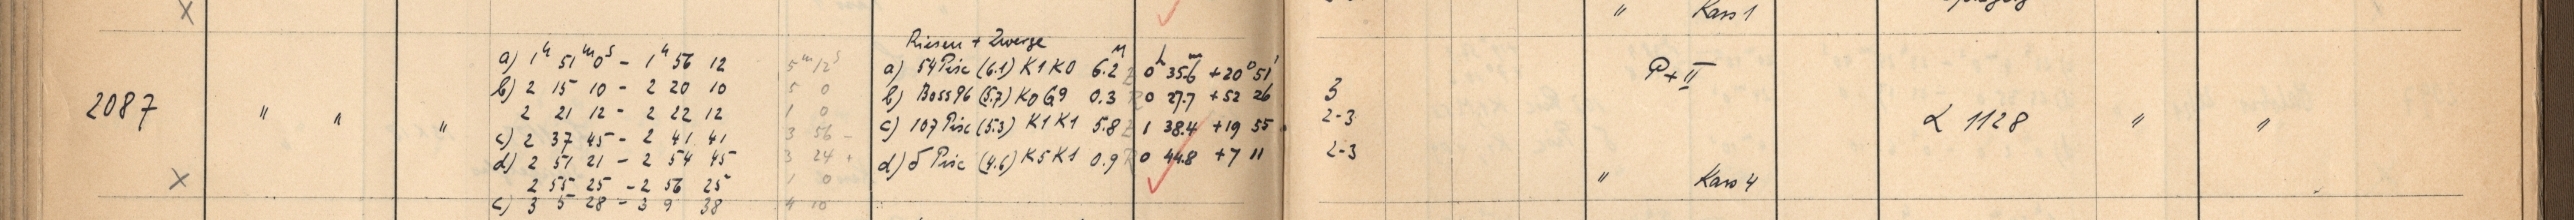 X
" Kass 1
Riesen + Zwerge
a) 1ʰ 51ᵐ 0ˢ - 1ʰ 56 12 5ᵐ 12ˢ a) 54 Pisc (6.1) K1 K0 6.2ᴹ Z 0ʰ 35.6ᵐ +20° 51' P + II
b) 2 15 10 - 2 20 10 5 0 b) Boss 96 (5.7) K0 G9 0.3 R 0 27.7 +52 26 3
2087 " " " 2 21 12 - 2 22 12 1 0 c) 107 Pisc (5.3) K1 K1 5.8 Z 1 38.4 +19 55 2-3 α 1128 " "
c) 2 37 45 - 2 41 41 3 56 -
d) 2 51 21 - 2 54 45 3 24 + d) δ Pisc (4.6) K5 K1 0.9 R 0 44.8 +7 11 2-3
X 2 55 25 - 2 56 25 1 0 " Kass 4
c) 3 5 28 - 3 9 38 4 10